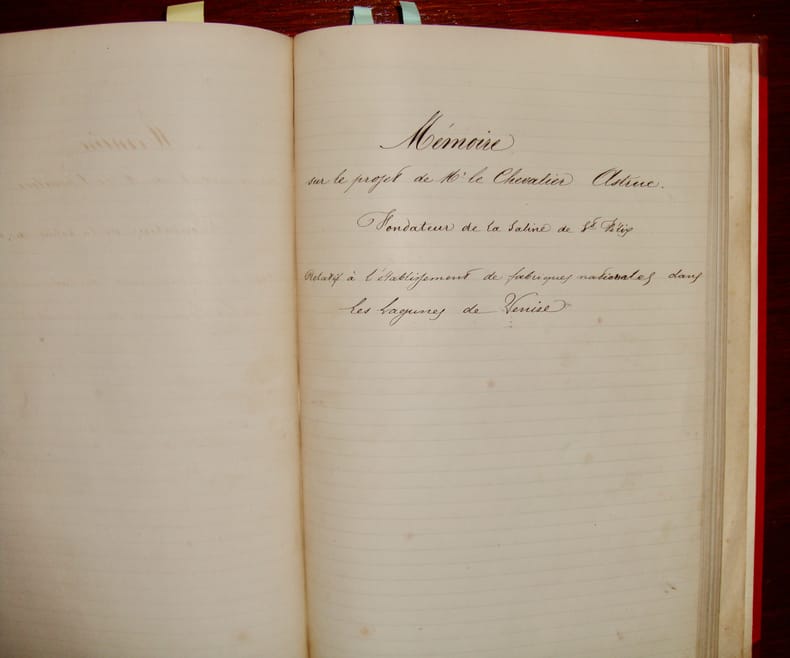 Mémoire
sur le projet de Mr le Chevalier Astruc.
Fondateur de la Saline de St Félix
Relatif à l'établissement de fabriques nationales dans
les Lagunes de Venise